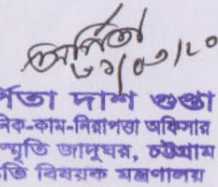 অর্পিতা
৩১/০৩/২০
র্পিতা দাশ গুপ্তা
নিক-কাম-নিরাপত্তা অফিসার
স্মৃতি জাদুঘর, চট্টগ্রাম
তি বিষয়ক মন্ত্রণালয়